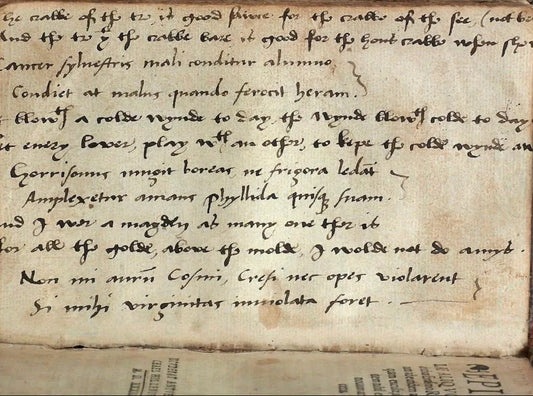 he crabbe of the tre is good sawce for the crabbe of the see (not be
And the tre yt the crabbe bare is good for the hous crabbe when she
Cancer sylvestris mali conditur alumno
Condiet at malus quando ferocit heram.
blowth a colde wynde to day, the wynde blowth colde to day
et euery lover, play wth an other, to kepe the colde wynde aw
Horrisonus mugit boreas, ne frigora ledāt
Amplexetur amans phyllida quisq suam.
nd I wer a mayden as many one ther is
For all the golde, above the molde, I wolde not do amys.
Non mi aurū Cosmi, Cresi nec opes violarent
Si mihi virginitas inviolata foret.